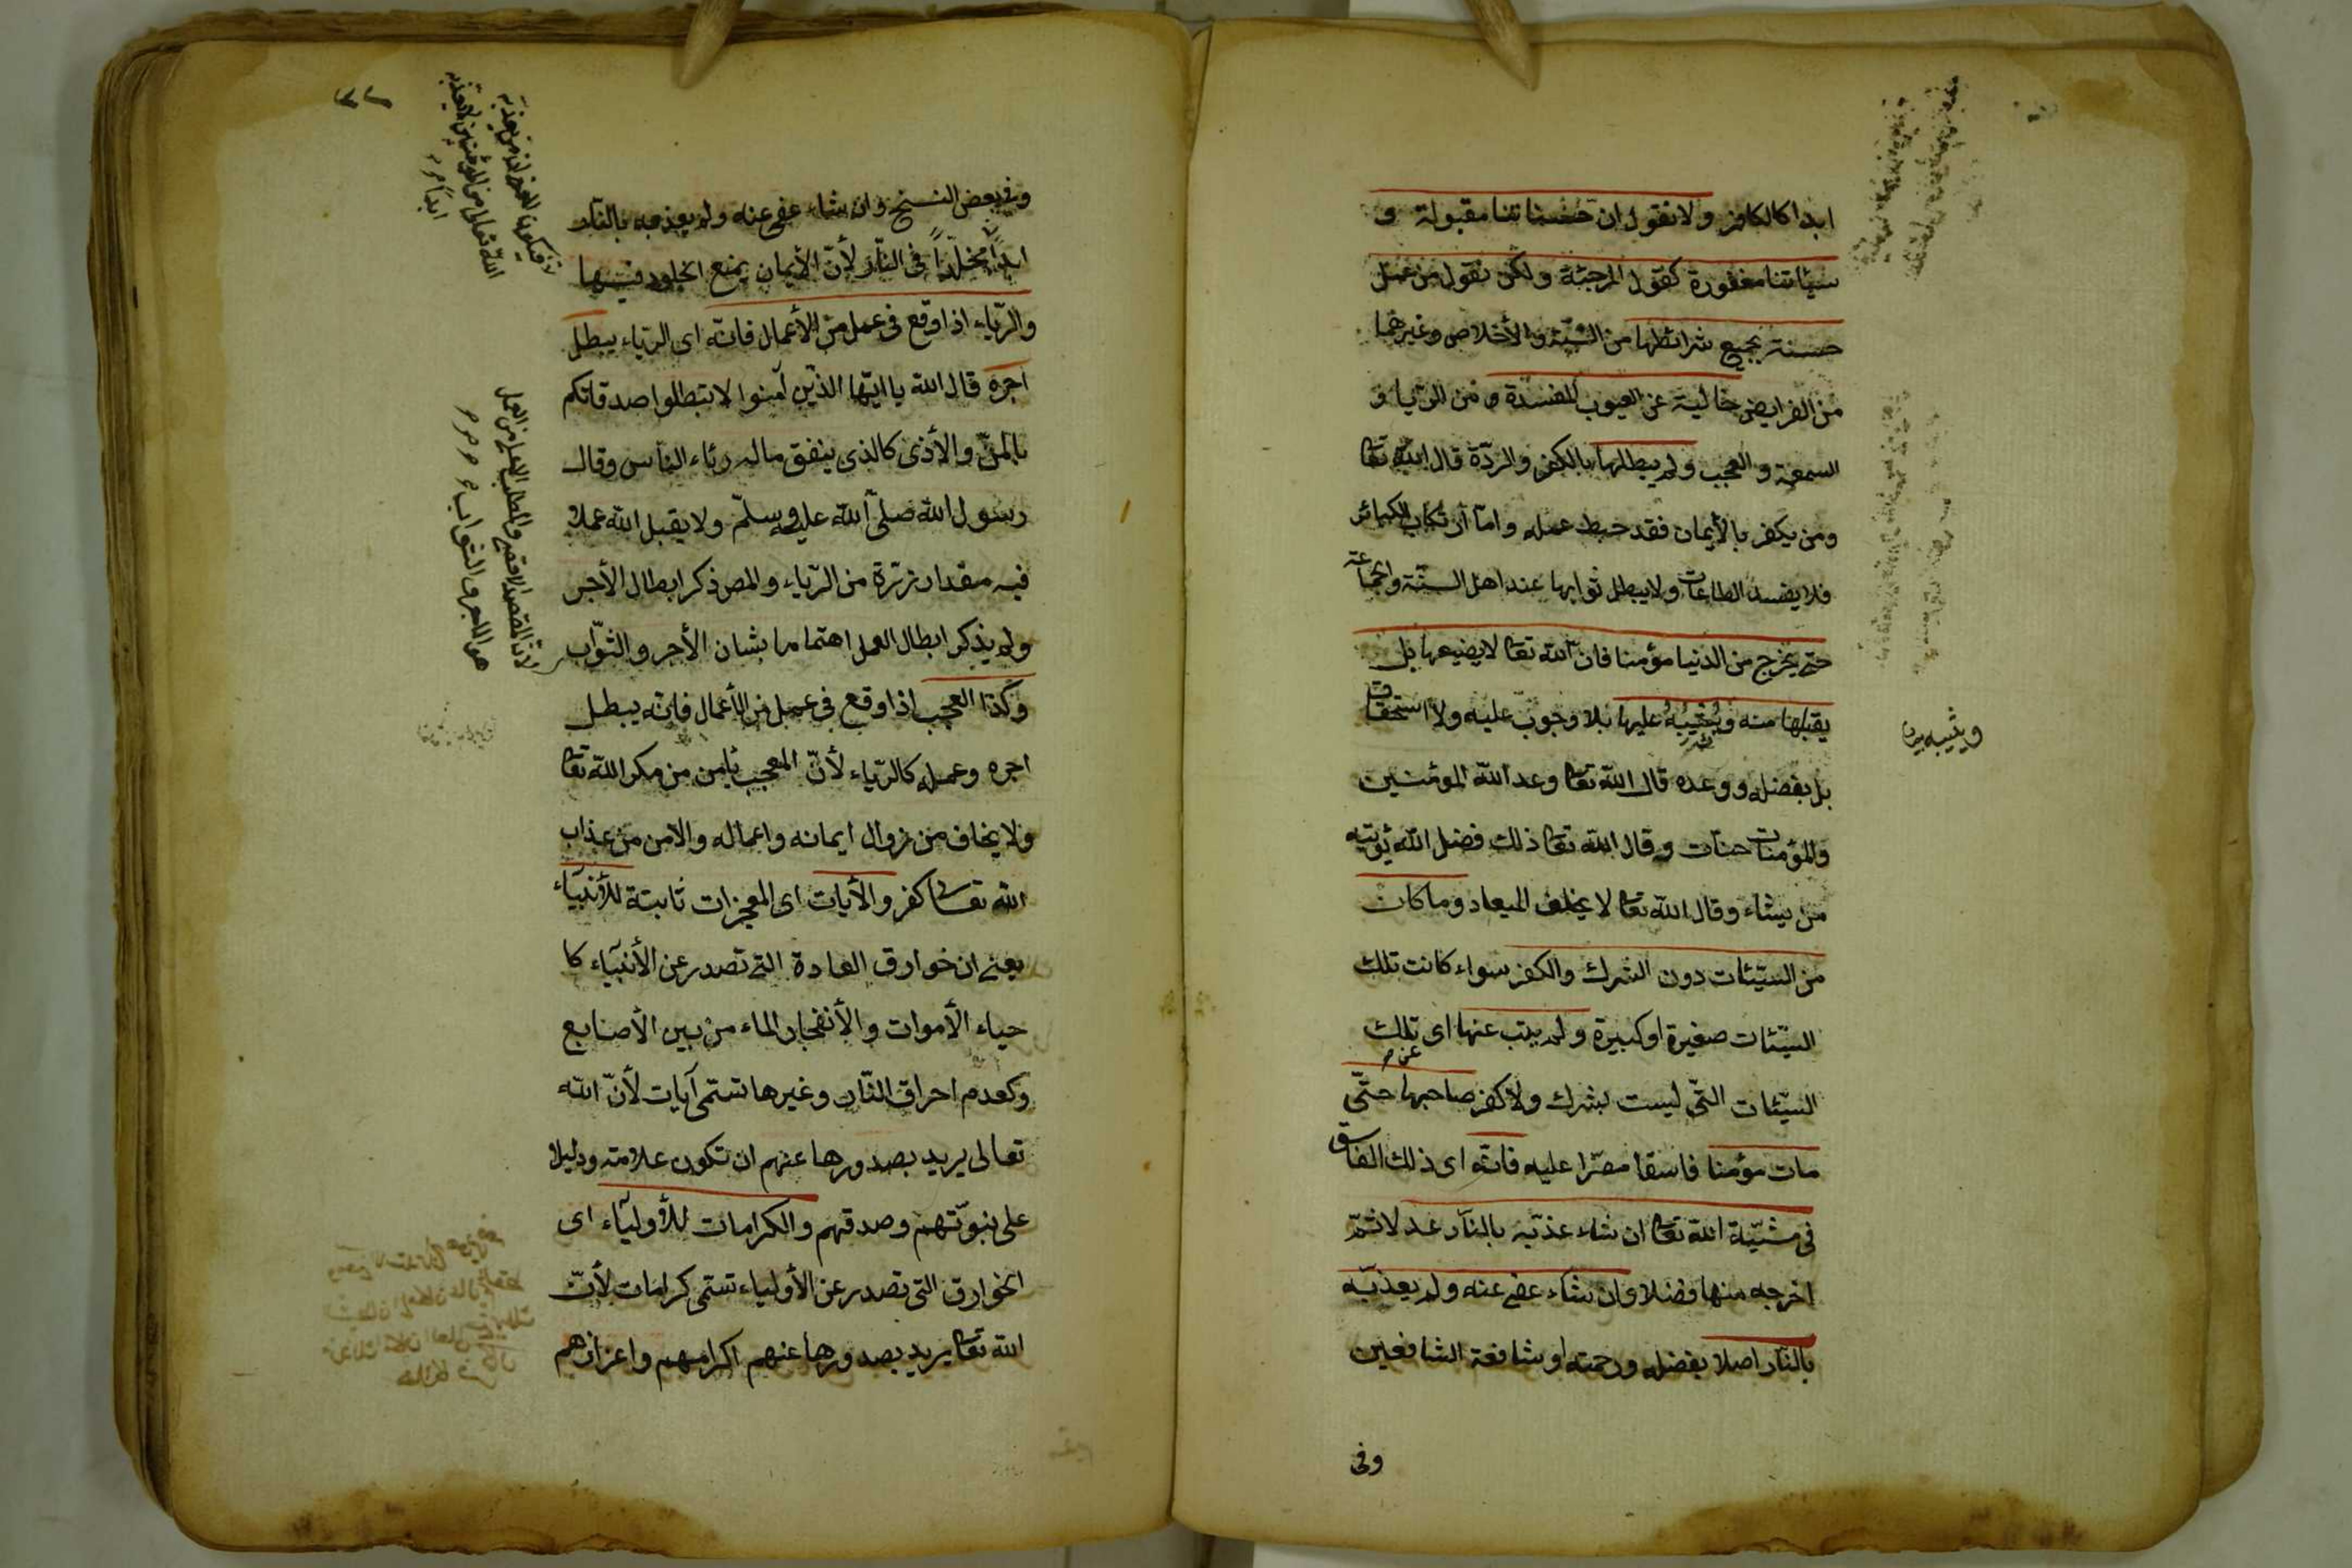 ابدا كالكافر ولا نقول ان حسناتنا مقبولة و
سيئاتنا مغفورة كقول المرجئة ولكن نقول من عمل
حسنة بجميع شرائطها من النية والأخلاص وغيرهما
من الفرايض خالية عن العيوب المفسدة و من الريا و
السمعة و العجب ولم يبطلها بالكفر والردّة قال الله تعا
ومن يكفر بالأيمان فقد حبط عمله وامّا ارتكاب الكبائر
فلا يفسد الطاعات ولا يبطل ثوابها عند اهل السنّة والجماعة
حتى يخرج من الدنيا مؤمنا فانّ الله تعا لا يضيعها بل
يقبلها منه ويُثيبُهُ عليها بلا وجوب عليه ولا استحقاق
ويثيبه
بل بفضله ووعده قال الله تعا وعد الله المؤمنين
والمؤمنات جنات وقال الله تعا ذلك فضل الله يؤتيه
من يشاء وقال الله تعا لا يخلف الميعاد وما كان
من السيّئات دون الشرك والكفر سواء كانت تلك
السيّئات صغيرة او كبيرة ولم يتب عنها اى تلك
السيّئات التّى ليست بشرك ولا كفر صاحبها حتّى
مات مؤمنا فاسقا مصرّا عليه فانّه اى ذلك الفاسق
فى مشيّة الله تعا ان شاء عذّبه بالنّار عدلا ثمّ
اخرجه منها فضلا وان شاء عفى عنه ولم يعذّبه
بالنّار اصلا بفضله ورحمته او شافعة الشافعين
وفى
وفى بعض النسخ وان شاء عفى عنه ولم يعذبه بالنّار
ابداً مخلّداً فى النّار لأنّ الأيمان يمنع الخلود فيها
والرّياء اذا وقع فى عمل من الأعمال فانّه اى الرّياء يبطل
اجره قال الله يا ايّها الذّين آمنوا لا تبطلوا صدقاتكم
بالمنّ والأذى كالذى ينفق ماله رئاء الناس وقال
رسول الله صلّى الله عليه وسلّم ولا يقبل الله عملا
فيه مقدار ذرّة من الرّياء والمص ذكر ابطال الأجر
ولم يذكر ابطال العمل اهتماما بشان الأجر والثّواب
وكذا العجب اذا وقع فى عمل من الأعمال فانّه يبطل
اجره وعمله كالرّياء لأنّ المعجب يأمن من مكر الله تعا
ولا يخاف من زوال ايمانه واعماله والأمن من عذاب
الله تعالى كفر والأيات اى المعجزات ثابتة للأنبيآء
يعنى ان خوارق العادة التى تصدر عن الأنبيآء كا
حياء الأموات والأنفجار الماء من بين الأصابع
وكعدم احراق النّار وغيرها تسمّى آيات لأنّ الله
تعالى يريد بصدورها عنهم ان تكون علامته ودليلا
على نبوّتهم وصدقهم والكرامات للأوليآء اى
الخوارق التى تصدر عن الأولياء تسمّى كرامات لأنّ
الله تعا يريد بصدورها عنهم اكرامهم واعزازهم